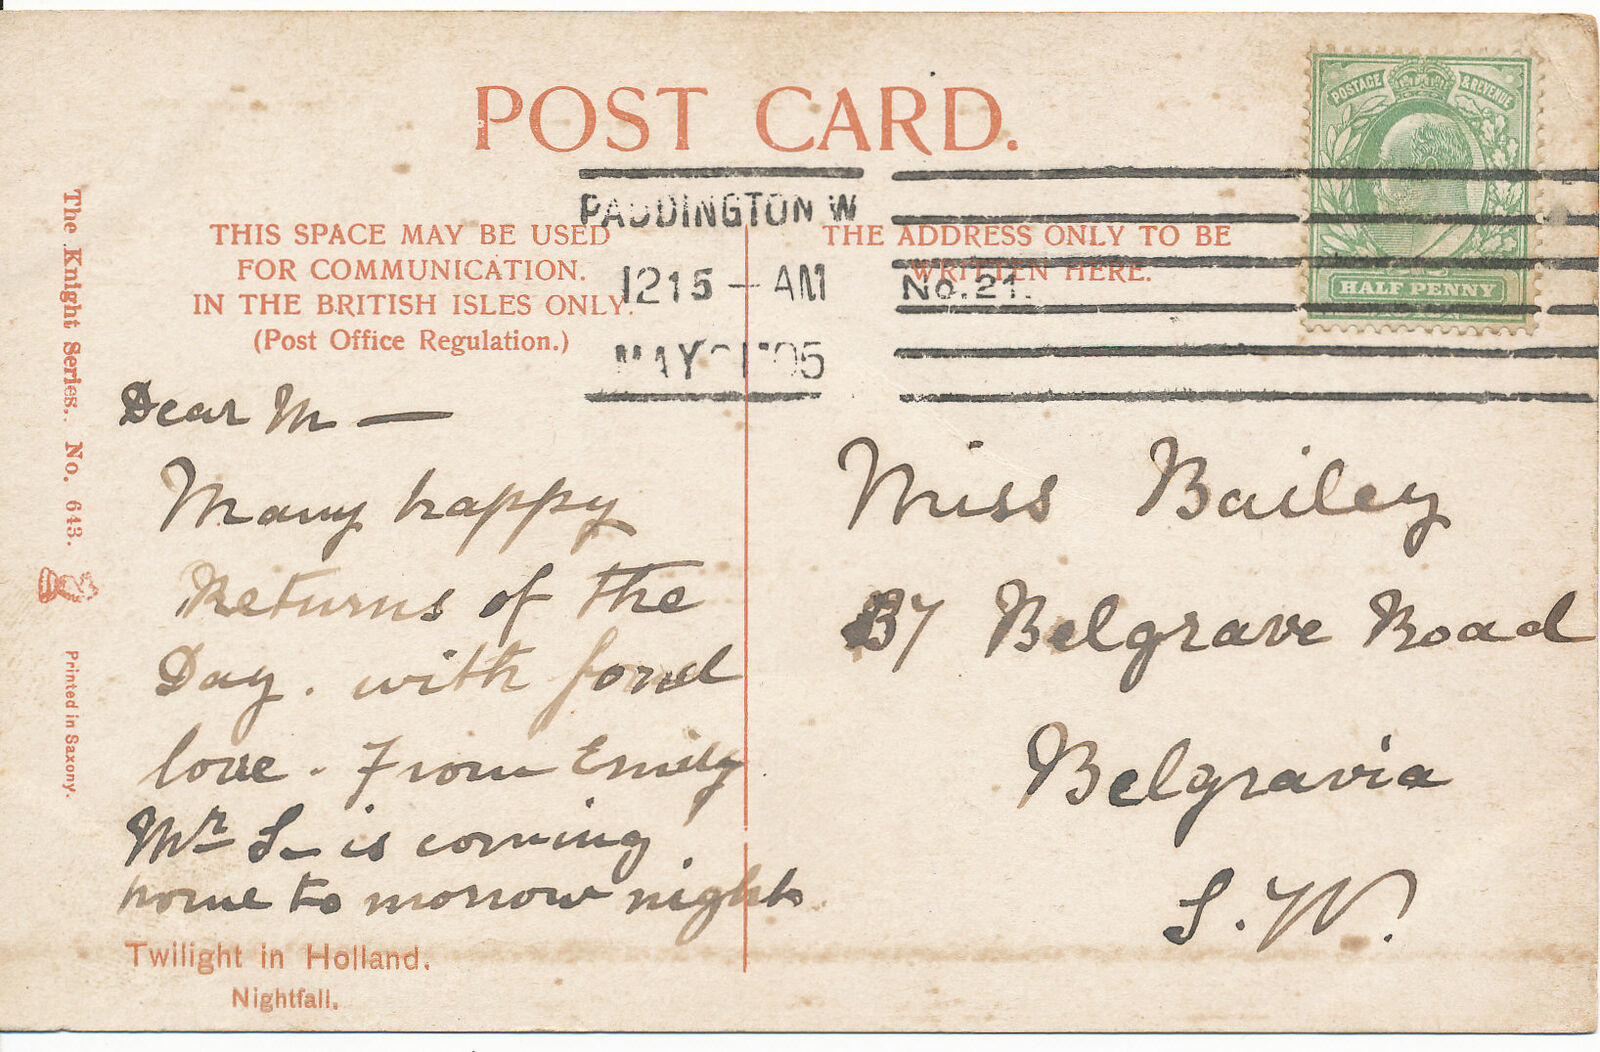 POST CARD.
POSTAGE & REVENUE
HALF PENNY
PADDINGTON W
1215 — AM
MAY 05
No. 21.
THIS SPACE MAY BE USED
FOR COMMUNICATION.
IN THE BRITISH ISLES ONLY.
(Post Office Regulation.)
THE ADDRESS ONLY TO BE
WRITTEN HERE.
The Knight Series. No. 643.
Printed in Saxony.
Dear M —
Many happy
Returns of the
Day. with fond
love. From Emily
Mr S— is coming
home to morrow night
Twilight in Holland.
Nightfall.
Miss Bailey
37 Belgrave Road
Belgravia
S.W.